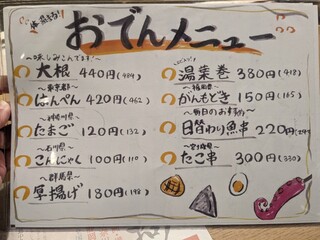 体温まる!
おでんメニュー
〜味しみこんでます!〜
大根 440円(484)
〜東京都〜
はんぺん 420円(462)
〜神奈川県〜
たまご 120円(132)
〜石川県〜
こんにゃく 100円(110)
〜群馬県〜
厚揚げ 180円(198)
湯葉巻 380円(418)
〜福岡県〜
がんもどき 150円(165)
〜本日のおすすめ〜
日替わり魚串 220円
〜宮城県〜
たこ串 300円(330)